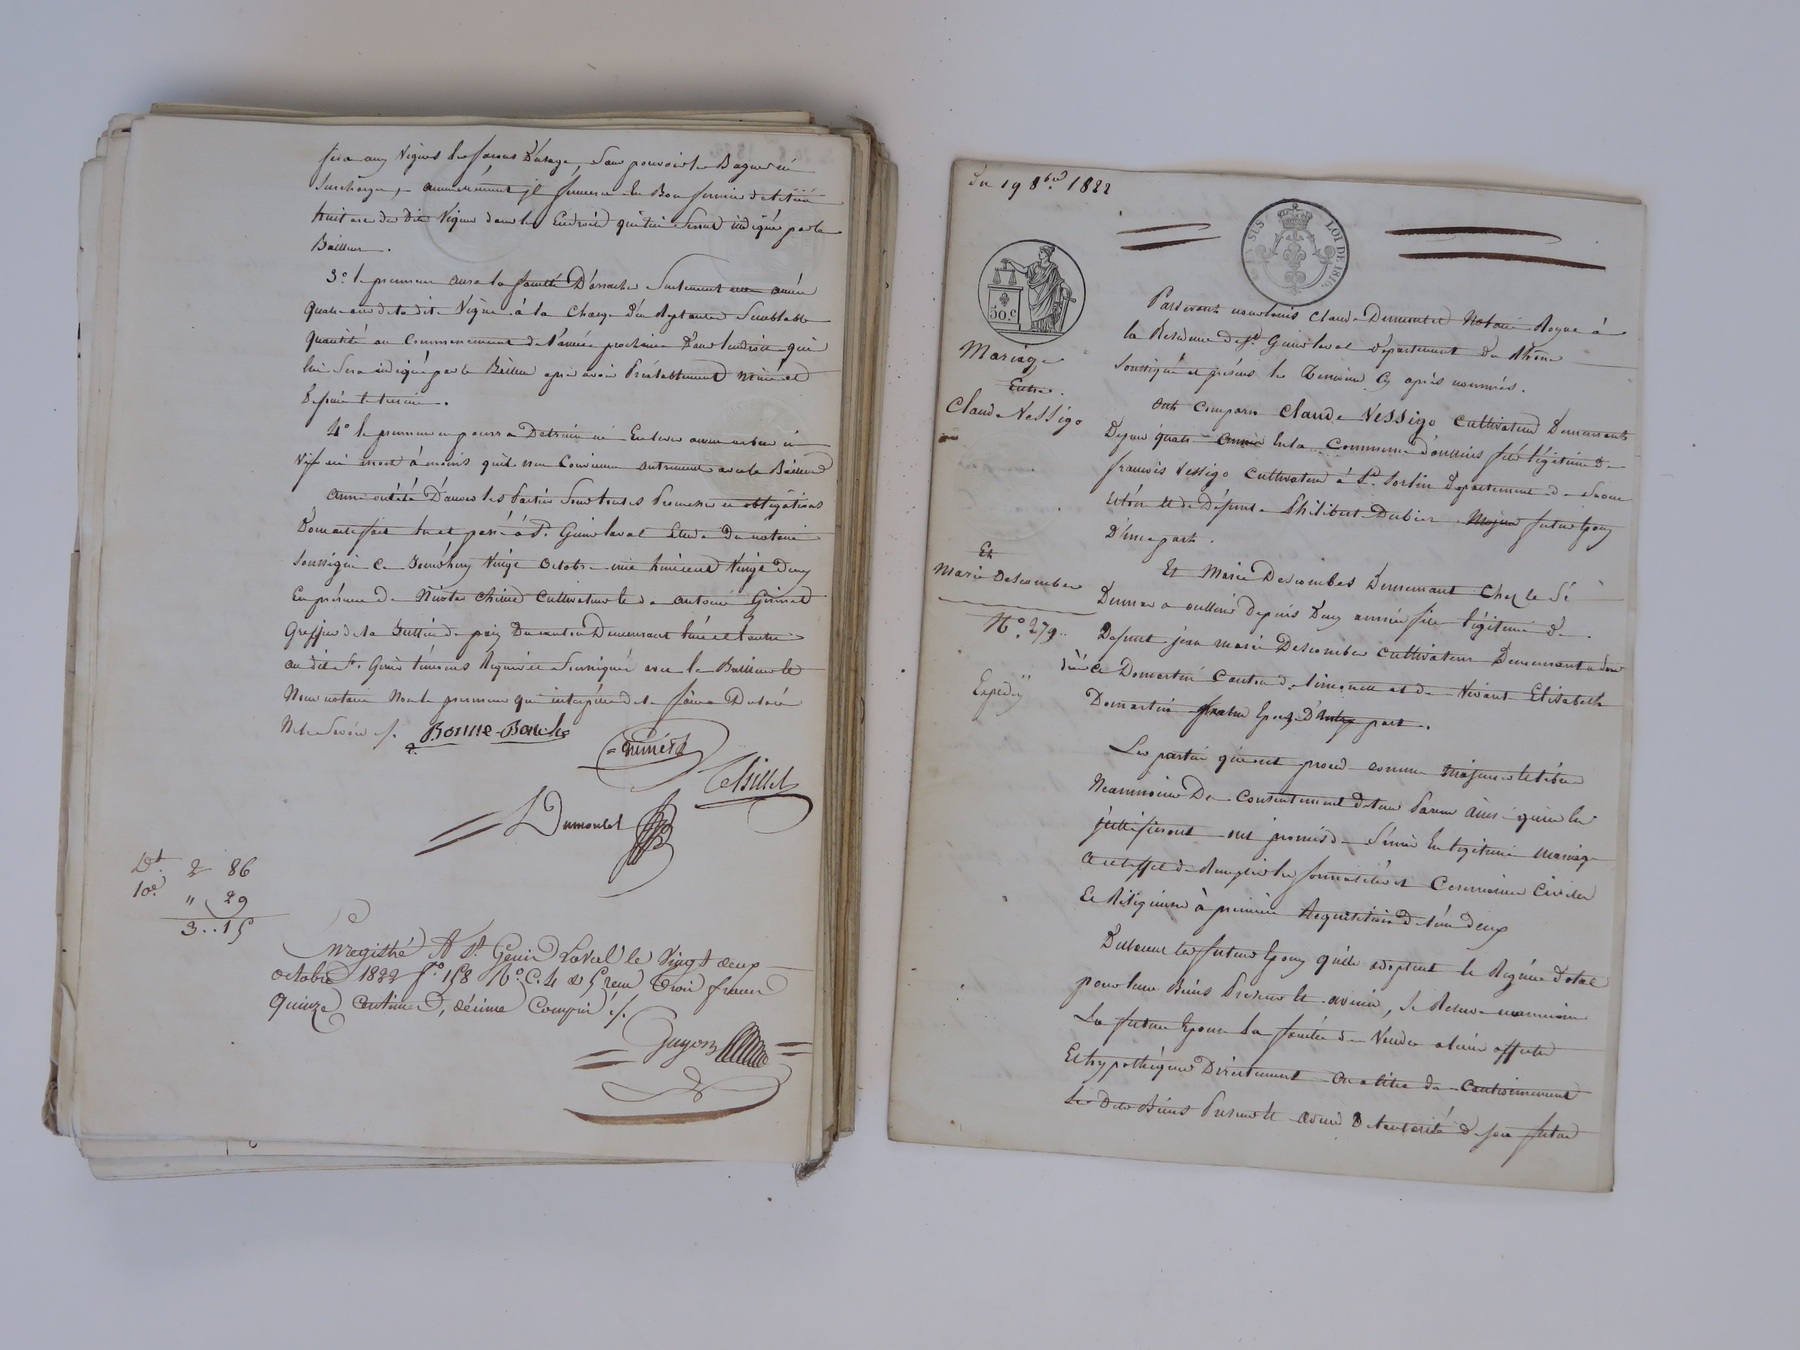 fera aux Vignes les fosses D'usage, sans pouvoir les Bagner ni
Surcharger,
dite Vigne dans les Endroits qui lui Seront indiqué par le
Bailleur.
3.° le preneur aura la faculté D'arracher Seulement une année
quatre de la dite Vigne à la Charge D'en Replanter Semblable
quantité au Commencement de l'année prochaine Dans l'endroit qui
lui Sera indiqué par le Bailleur après avoir Préalablement miné et
Défoncé le terrain.
4° le preneur ne pourra Détruire ni Enlever aucun arbre ni
Vif ni mort à moins qu'il n'en Convienne autrement avec le Bailleur
Sous toutes Promesses et obligations
Dont acte fait lu et passé à St. Genis laval Etude du notaire
Soussigné Ce Jourd'huy Vingt Octobre mil huit cent Vingt Deux
En présence de Nicolas Chinié Cultivateur et de antoine
Greffier de la Justice de paix Du canton Demeurant l'un et l'autre
au dit St. Genis témoins Requis et Soussignés avec le Bailleur et
Nous notaire Non le preneur qui interpellé de le faire a Déclaré
Ne le Savoir ./. Bonne-Bouche
Dumoulet
Dt. 2 86
10e. " 29
3..15
Enregistré A St. Genis Laval le Vingt deux
octobre 1822 f° 158 V° C. 4 & 5 reçu trois francs
Quinze Centimes, décime Compris ./.
Guyon
Du 19 8bre 1822
LOI DE 1816
50.c
Mariage
Entre
Claude Vessigo
Et
Marie Descombes
N°. 279..
Expédié
Pardevant nous Louis Claude Dumoulet Notaire Royal à
la Résidence de St. Genis laval Département du Rhône
Soussigné et présens les Témoins Cy après nommés.
Ont Comparu Claude Vessigo Cultivateur Demeurant
Depuis quatre années En la Commune d'oullins fils légitime de
françois Vessigo Cultivateur à St. Sorlin Département de Saone
et Loire et de Défunte Philiberte Dubier Majeur futur Epoux
D'Une part.
Et Marie Descombes Demeurant Chez le Sr.
a oullins Depuis Deux années fille légitime de
Défunt jean marie Descombes Cultivateur Demeurant a
Domartin Canton de limonest et de Vivante Elisabeth
Domartin future Epouse D'autre part.
Les parties qui ont procédé comme majeures et libres
Néanmoins Du Consentement de leurs Parens ainsi qu'ils le
justifieront ont promis de S'unir En légitime mariage
à cet effet de Remplir les formalités et Cérémonies Civiles
Et Réligieuses à première Réquisition de l'un deux
Déclarent les futurs Epoux qu'ils adoptent le Régime Dotal
pour leurs Biens Présens et avenir, se Réserve néanmoins
La future Epouse La faculté de Vendre aliéner affecter
Et hypothéquer Directement ou a titre de Cautionnement
Ses Dits Biens Présens et avenir De l'autorité de son futur